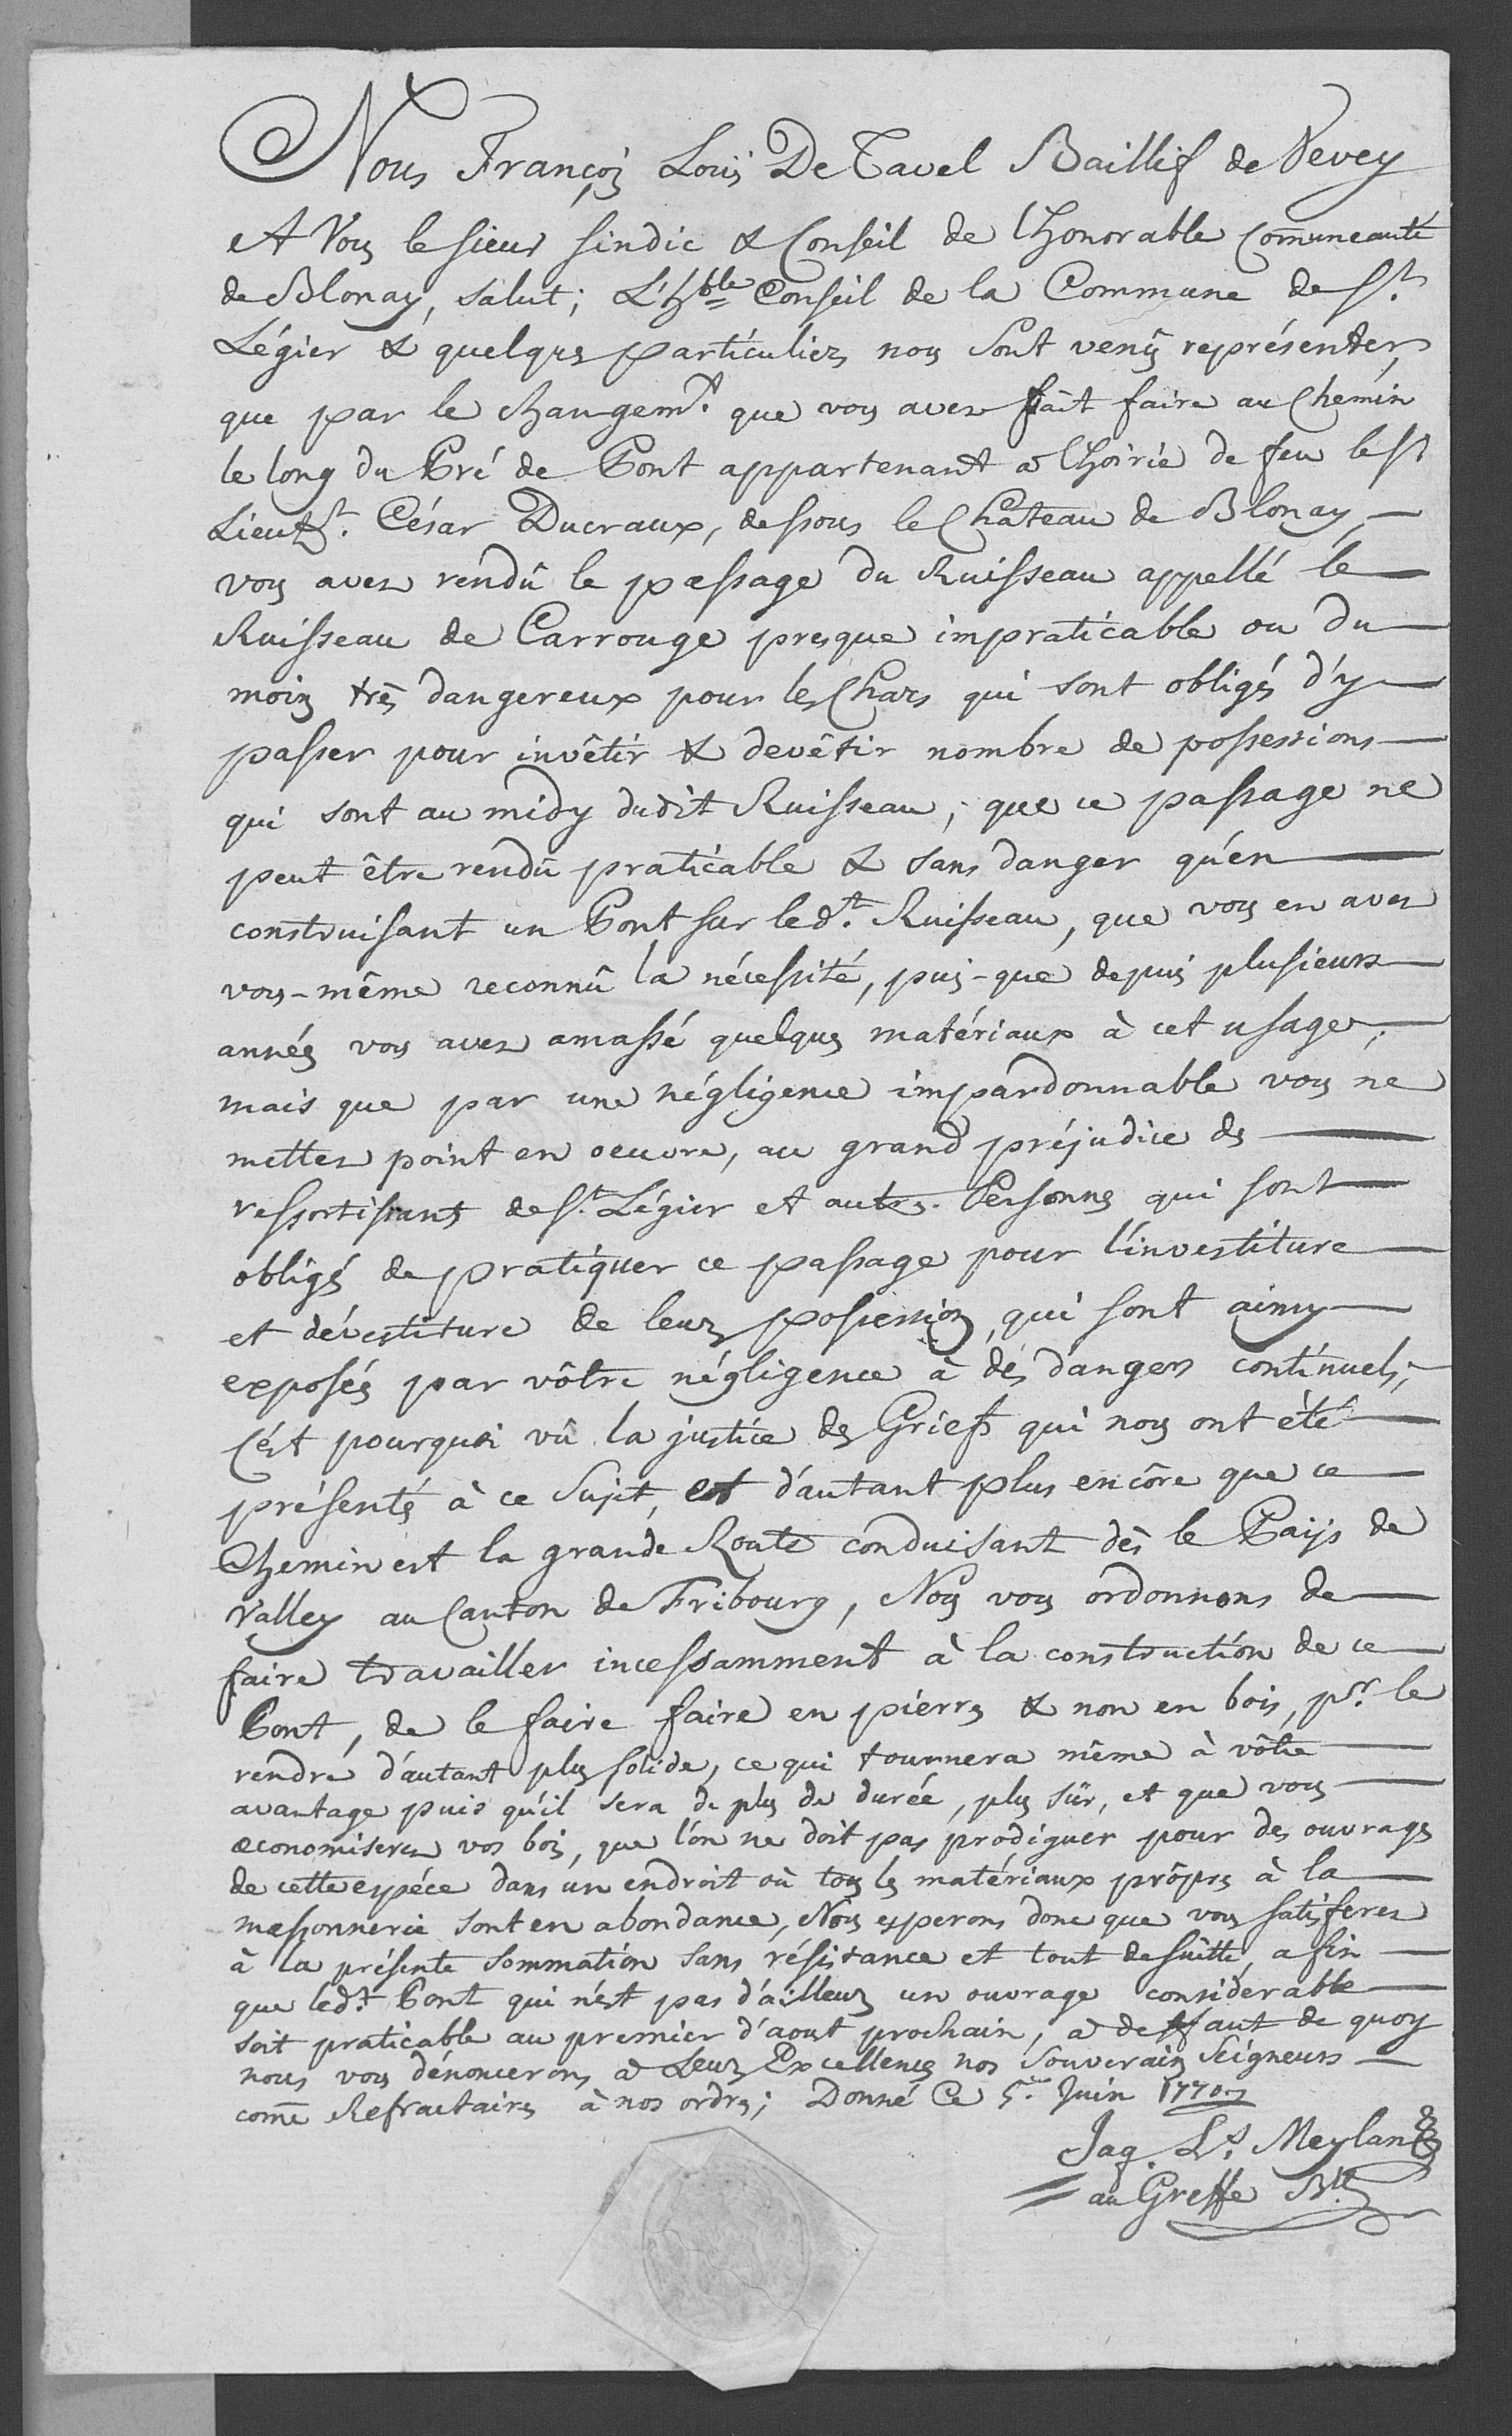 Nous François Louis De Tavel Baillif de Vevey
A Vous le sieur sindic & Conseil de l'honorable Comuneauté
de Blonay, salut; L'hble Conseil de la Commune de St
Légier & quelques particuliers nous sont venus représenter,
que par le changemt. que vous avez fait faire au Chemin
le long du Pré de Pont appartenant a l'hoirie de feu le Sr
Lieutt. César Ducraux, dessous le Château de Blonay,
vous avez rendû le passage du Ruisseau appellé le
Ruisseau de Carrouge presque impraticable ou du
moins très dangereux pour les Chars qui sont obligés d'y
passer pour invêtir & devêtir nombre de possessions
qui sont au midy dudit Ruisseau; que ce passage ne
peut être rendu praticable & sans danger qu'en
construisant un Pont sur ledt. Ruisseau, que vous en avez
vous-même reconnû la nécessité, puis-que depuis plusieurs
années vous avez amassé quelques matériaux à cet usage;
mais que par une négligence impardonnable vous ne
mettez point en oeuvre, au grand préjudice des
ressortissants de St. Légier et autres Personnes qui sont
obligés de pratiquer ce passage pour l'investiture
et dévestiture de leurs possessions, qui sont ainsy
exposés par vôtre négligence à des dangers continuels;
C'est pourquoi vû la justice des Griefs qui nous ont été
présentés à ce Sujet, et d'autant plus encôre que ce
Chemin est la grande Route conduisant dès le Païs de
Valley au Canton de Fribourg, Nous vous ordonnons de
faire travailler incessamment à la construction de ce
Pont, de le faire faire en pierres & non en bois, pr. le
rendre d'autant plus solide, ce qui tournera même à vôtre
avantage puis qu'il sera de plus de durée, plus sûr, et que vous
œconomiserez vos bois, que l'on ne doit pas prodiguer pour des ouvrages
de cette espéce dans un endroit où tous les matériaux prôpres à la
massonnerie sont en abondance, Nous esperons donc que vous satisferez
à la présente Sommation sans résistance et tout de suitte, afin
que ledt. Pont qui n'est pas d'ailleurs un ouvrage considerable
soit praticable au premier d'aout prochain, a deffaut de quoy
nous vous dénoncerons à Leurs Excellences nos Souverains Seigneurs
come Refractaires à nos ordres; Donné Ce 5e. Juin 1770
Jaq. Ls. Meylan
au Greffe Bl.